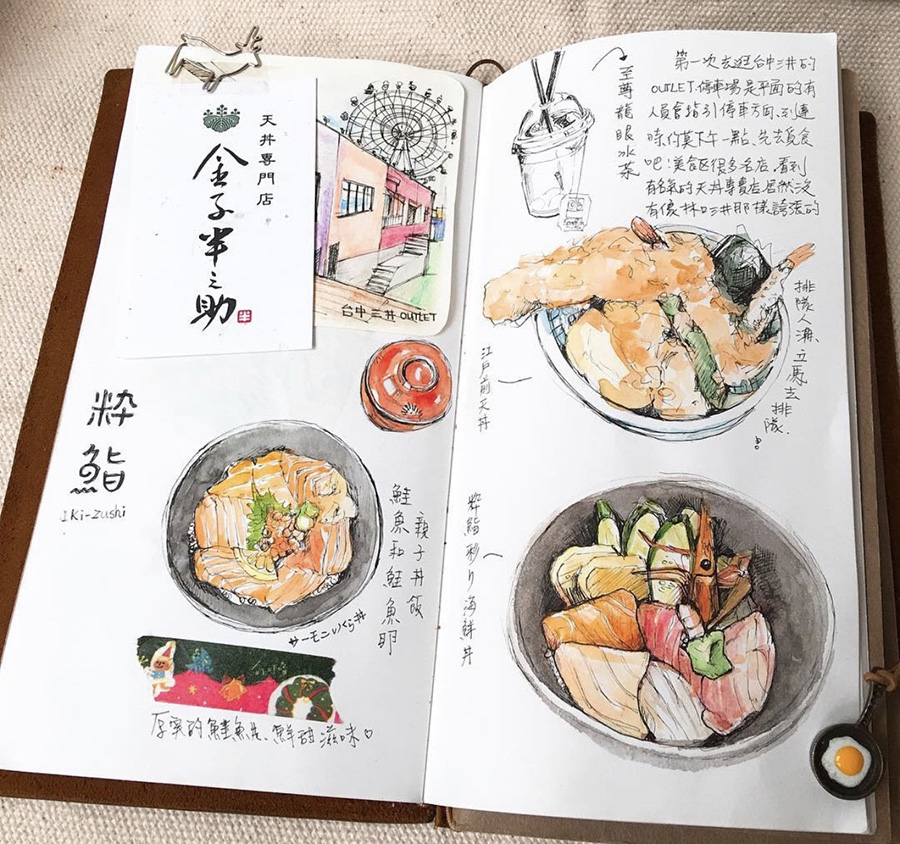 天丼專門店
金子半之助
半
台中三井 OUTLET
粋
鮨
iki-zushi
鮭魚和鮭魚卵
親子丼飯
サーモンいくら丼
厚實的鮭魚片、鮮甜滋味♡
至尊龍眼冰茶
第一次去逛台中三井的
OUTLET.停車場是平面的有
人員會指引停車方向、到達
時約莫下午一點、先去覓食
吧!美食区很多名店、看到
有名氣的天丼專賣店居然没
有像林口三井那樣誇張的
排隊人潮、立馬去
排隊.!
江戶前天丼
粋鮨彩り海鮮丼